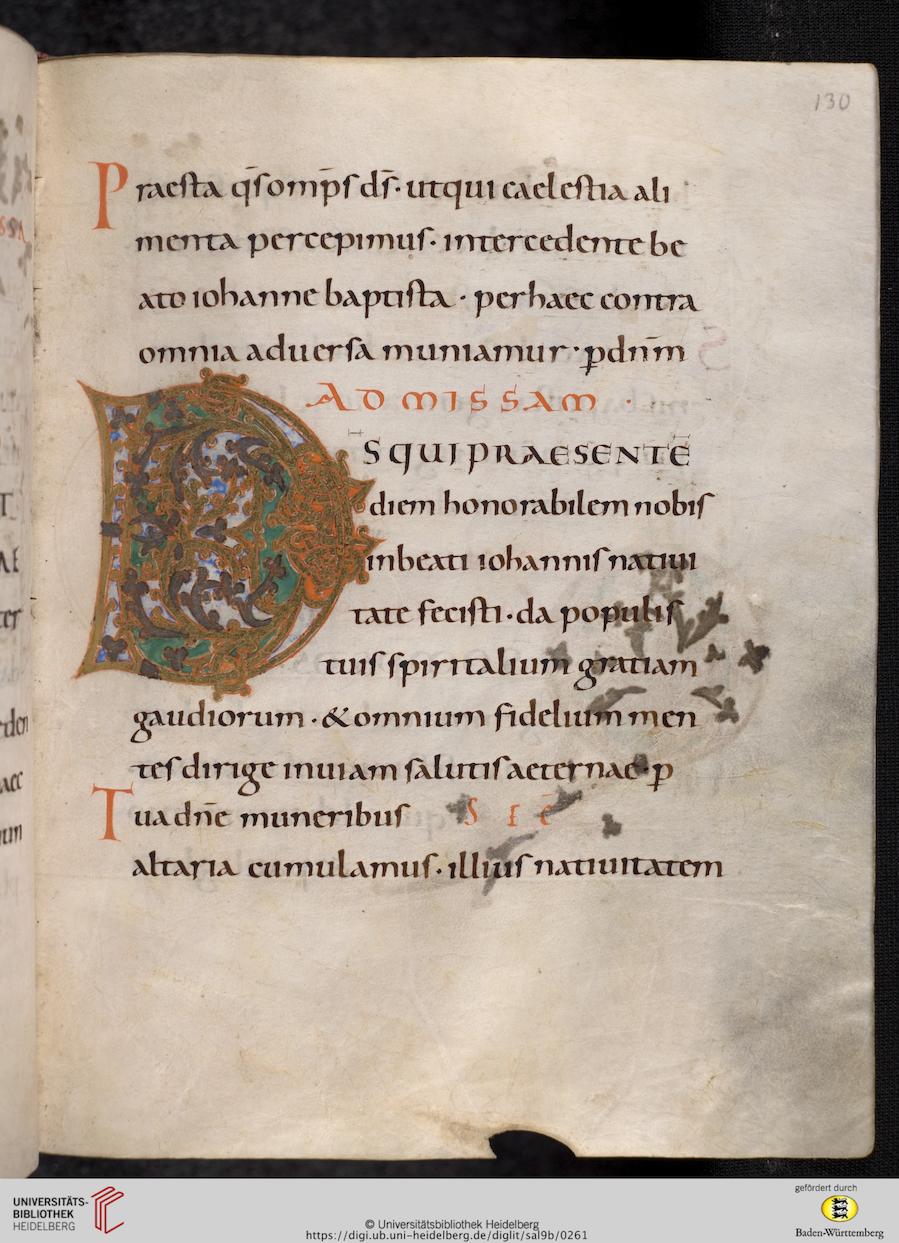 130
Praesta q̄s om̄ps d̄s· ut qui caelestia ali
menta percepimus· intercedente be
ato iohanne baptista· per haec contra
omnia aduersa muniamur· p dn̄m
AD MISSAM·
DS QUI PRAESENTĒ
diem honorabilem nobis
in beati iohannis natiui
tate fecisti· da populis
tuis spiritalium gratiam
gaudiorum· & omnium fidelium men
tes dirige in uiam salutis aeternae· p
Tua dn̄e muneribus S E C̄
altaria cumulamus· illius natiuitatem
UNIVERSITÄTS-
BIBLIOTHEK
HEIDELBERG
© Universitätsbibliothek Heidelberg
https://digi.ub.uni-heidelberg.de/diglit/sal9b/0261
gefördert durch
Baden-Württemberg